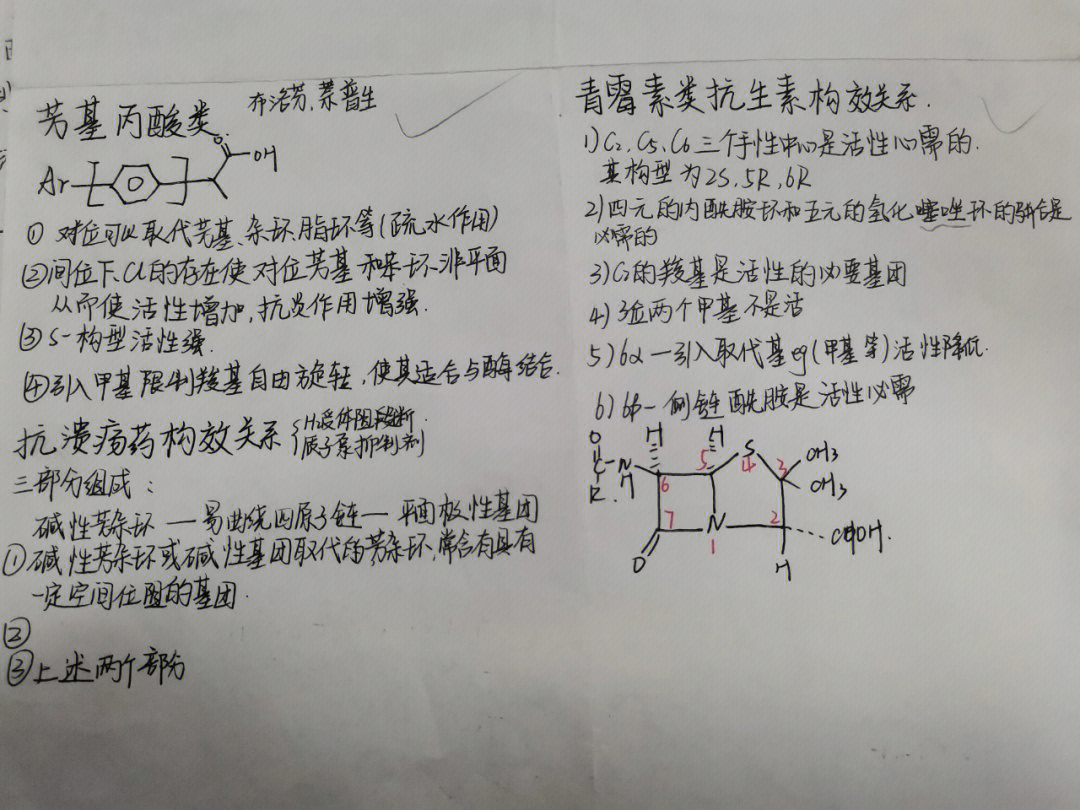 芳基丙酸类. 布洛芬,萘普生
O
OH
Ar
① 对位可以取代芳基、杂环、脂环等(疏水作用)
②间位F、Cl的存在使对位芳基和杂环非平面
从而使活性增加,抗炎作用增强.
③S-构型活性强.
④引入甲基限制羧基自由旋转,使其适合与酶结合.
抗溃疡药构效关系 { H₂受体阻断.
质子泵抑制剂
三部分组成:
碱性芳杂环 — 易曲绕四原子链 — 平面极性基团
①碱性芳杂环或碱性基团取代的芳杂环,常含有具有
一定空间位置的基团.
②
③上述两个部分
青霉素类抗生素构效关系.
1) C₂、C₅、C₆ 三个手性中心是活性必需的.
其构型为2S,5R,6R
2)四元的内酰胺环和五元的氢化噻唑环的骈合是
必需的
3) C₂的羧基是活性的必要基团
4) 3位两个甲基不是活
5) 6α-引入取代基eg(甲基等)活性降低.
6) 6β-侧链酰胺是活性必需
O H H
C-N 5 S 4 3 CH₃
R. H 6 CH₃
7 N 2 COOH.
O 1 H